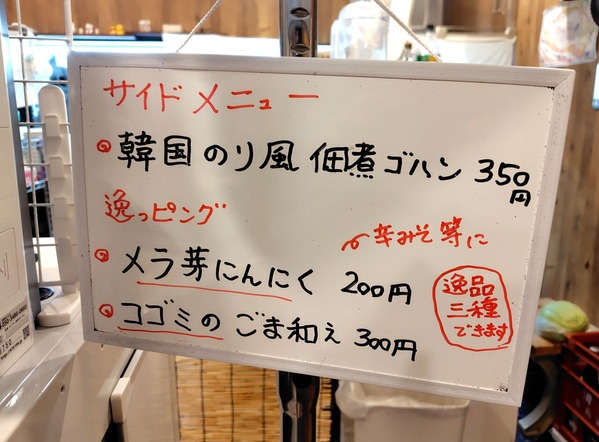 サイドメニュー
韓国のり風 佃煮ゴハン 350円
逸っピング
辛みそ等に
メラ芽にんにく 200円
コゴミの ごま和え 300円
逸品
三種
できます